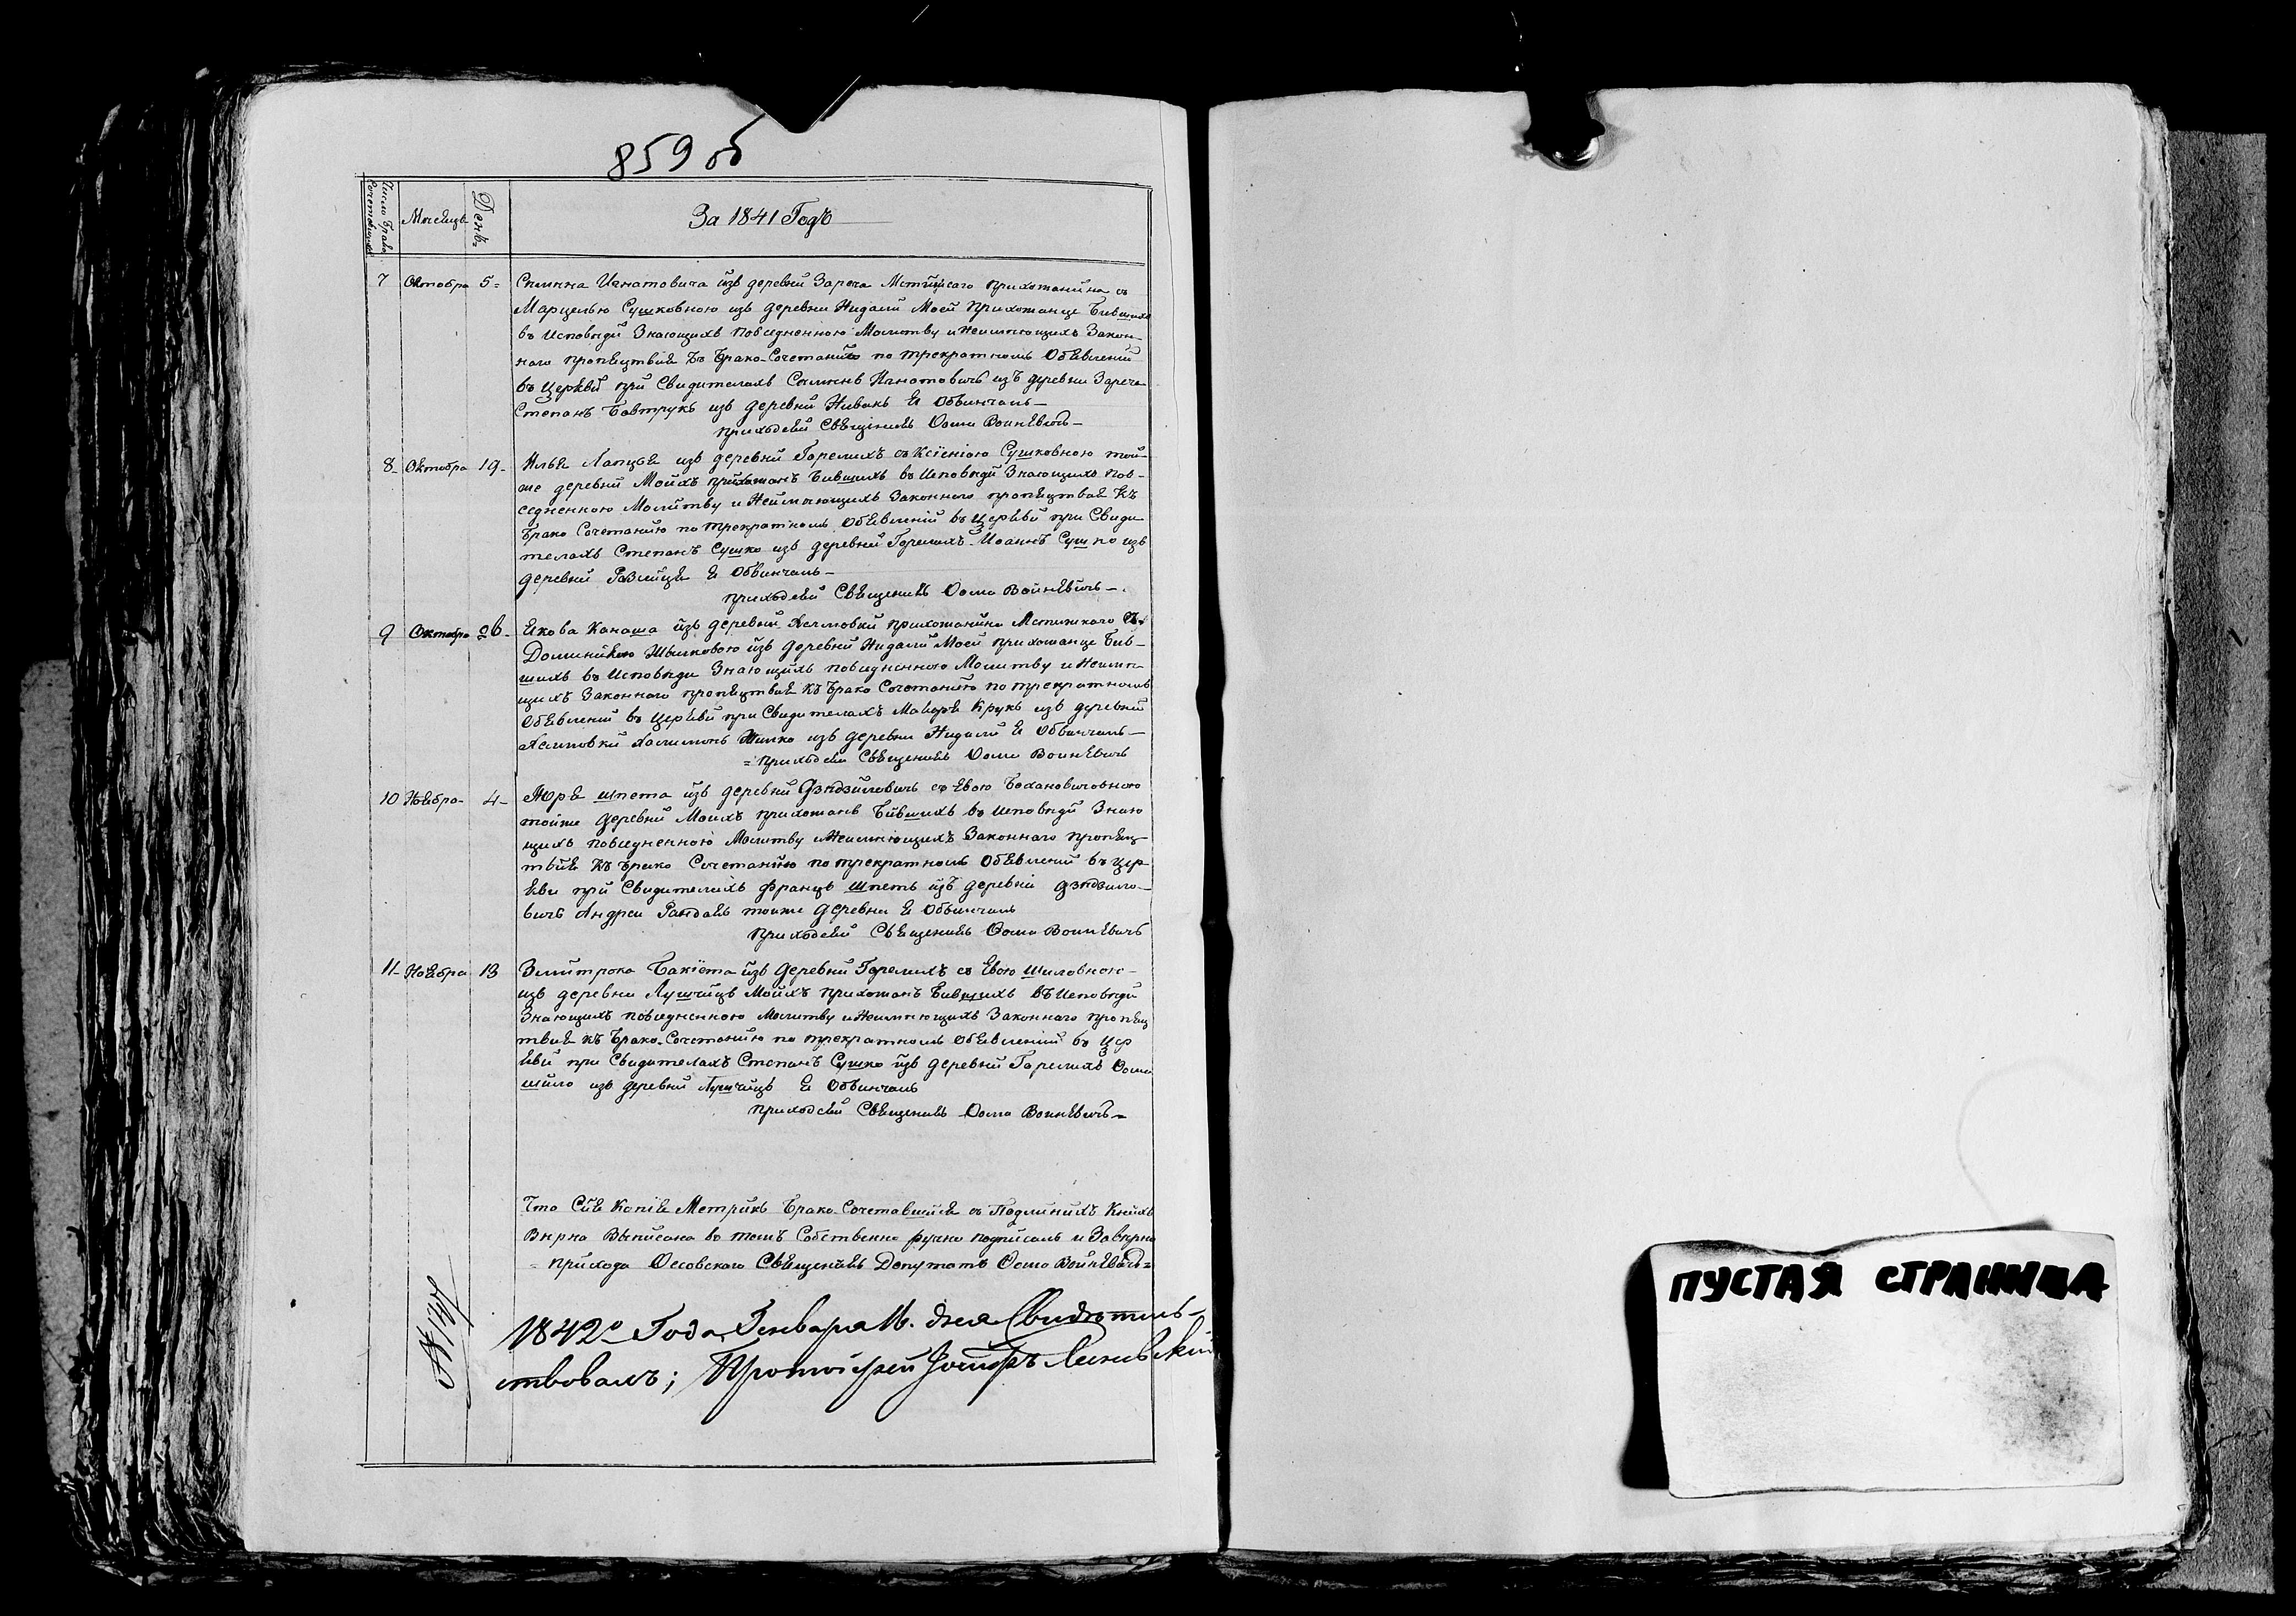 859 об
Число Брако
Сочетавшихъ
Месяцъ
День
За 1841 Годъ
7 Октобра 5 = Симина Игнатовича изъ деревни Зареча Мстижсаго прихожанина съ
Марцелью Сушковною изъ деревни Нидали Моей Прихожанце Бившихъ
въ Исповеди Знающихъ повседненною Молитву и Неимеющихъ Закон-
наго препяцтвия Къ Брако-Сочетанию по трекратномъ Обявлений
въ Церквй при Свидителахъ Симинъ Игнатовичъ изъ деревни Зареча
Степанъ Бавтрукъ изъ деревни Нивакъ Я Обвинчалъ —
приходскй Священикъ Фома Войневичъ —
8 - Октобра 19 - Илья Лапцея изъ деревнй Горелихъ съ Ксіенією Сушковною той-
же деревнй Моихъ прихожанъ Бившихъ въ Исповеди Знающихъ Пов-
седненною Молитву и Неимеющихъ Законного препяцтвая Къ
Брако Сочетанию по трекратномъ Обявленій въ Церквй при Свиди
телахъ Степанъ Сушко изъ деревнй Горелихъ - Иоаннъ Сушко изъ
деревнй Я Обвинчалъ —
приходскй Священикъ Фома Войневичъ —
9 Октобра 26 - Якова Канаша изъ деревнй прихожанина Мстижкаго Съ
Доминикою изъ деревнй Нидали Моей прихожанце Бив-
шихъ въ Исповеди Знающихъ повседненного Молитву и Неиме-
щихъ Законного препяцтвая Къ Брако Сочетанию по трекратномъ
Обявлений въ Церквй при Свидителахъ Крукъ изъ деревнй
изъ деревни Нидали Я Обвинчалъ —
= приходски Священикъ Фома Войневичъ
10 Ноябра - 4 - Юря Шпета изъ деревнй Дзядзиловичъ съ Евою Бохановичовною
тойже деревнй Моихъ прихожанъ Бившихъ въ Исповедй Знаю
щихъ повседненною Молитву и Неимеющихъ Законнаго препяц
твия Къ Брако Сочетанию по трекратномъ Обявлений въ Цер
кви при Свидителахъ Францъ Шпетъ изъ деревни Дзядзило-
вичъ Андрей тойже деревни Я Обвинчалъ
приходскй Священикъ Фома Войневичъ
11 - Ноября 13 Змитрока Бакіета изъ деревнй Горелихъ съ Евою Шиловною -
изъ деревни Лущицъ Моихъ прихожанъ Бившихъ въ Исповедй
Знающихъ повседненного Молитву и Неимеющихъ Законнаго препяц
твия Къ Брако-Сочетанию по трекратномъ Обявлений въ Цер
квй при Свидителахъ Степанъ Сушко изъ деревнй Горелихъ Фома
Шило изъ деревнй Лущицъ Я Обвинчалъ
приходскй Священикъ Фома Войневичъ =
Что Сия Копия Метрикъ Брако-Сочетавшися съ Подлинихъ Книхъ
Верна Выписана въ томъ Собственно ручно подписалъ и Заверилъ
= прихода Осовского Священикъ Депутатъ Фома Войневичъ =
1842о Года, Генваря 16. дня Свидетель-
ствовалъ; Протоіерей
ПУСТАЯ СТРАНИЦА